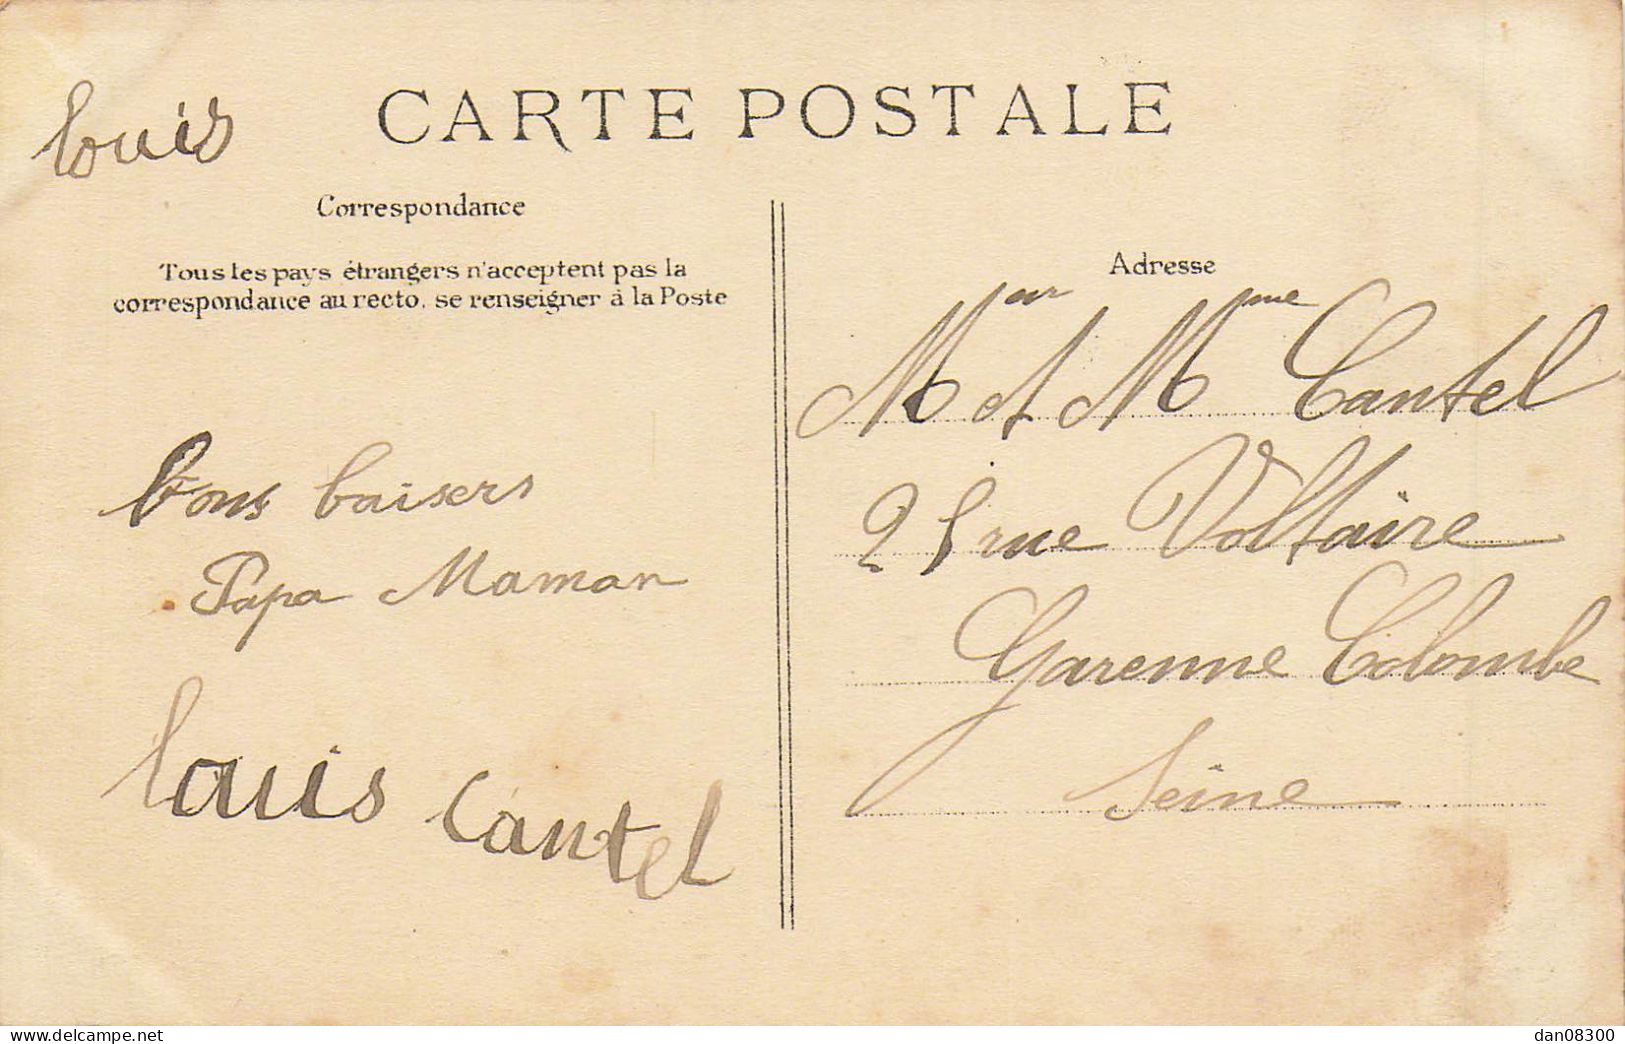 CARTE POSTALE
Louis
Correspondance
Tous les pays étrangers n'acceptent pas la
correspondance au recto, se renseigner à la Poste
Bons baisers
Papa Maman
Louis Cantel
Adresse
Meur et Mme Cantel
25 rue Voltaire
Garenne Colombe
Seine
www.delcampe.net
dan08300